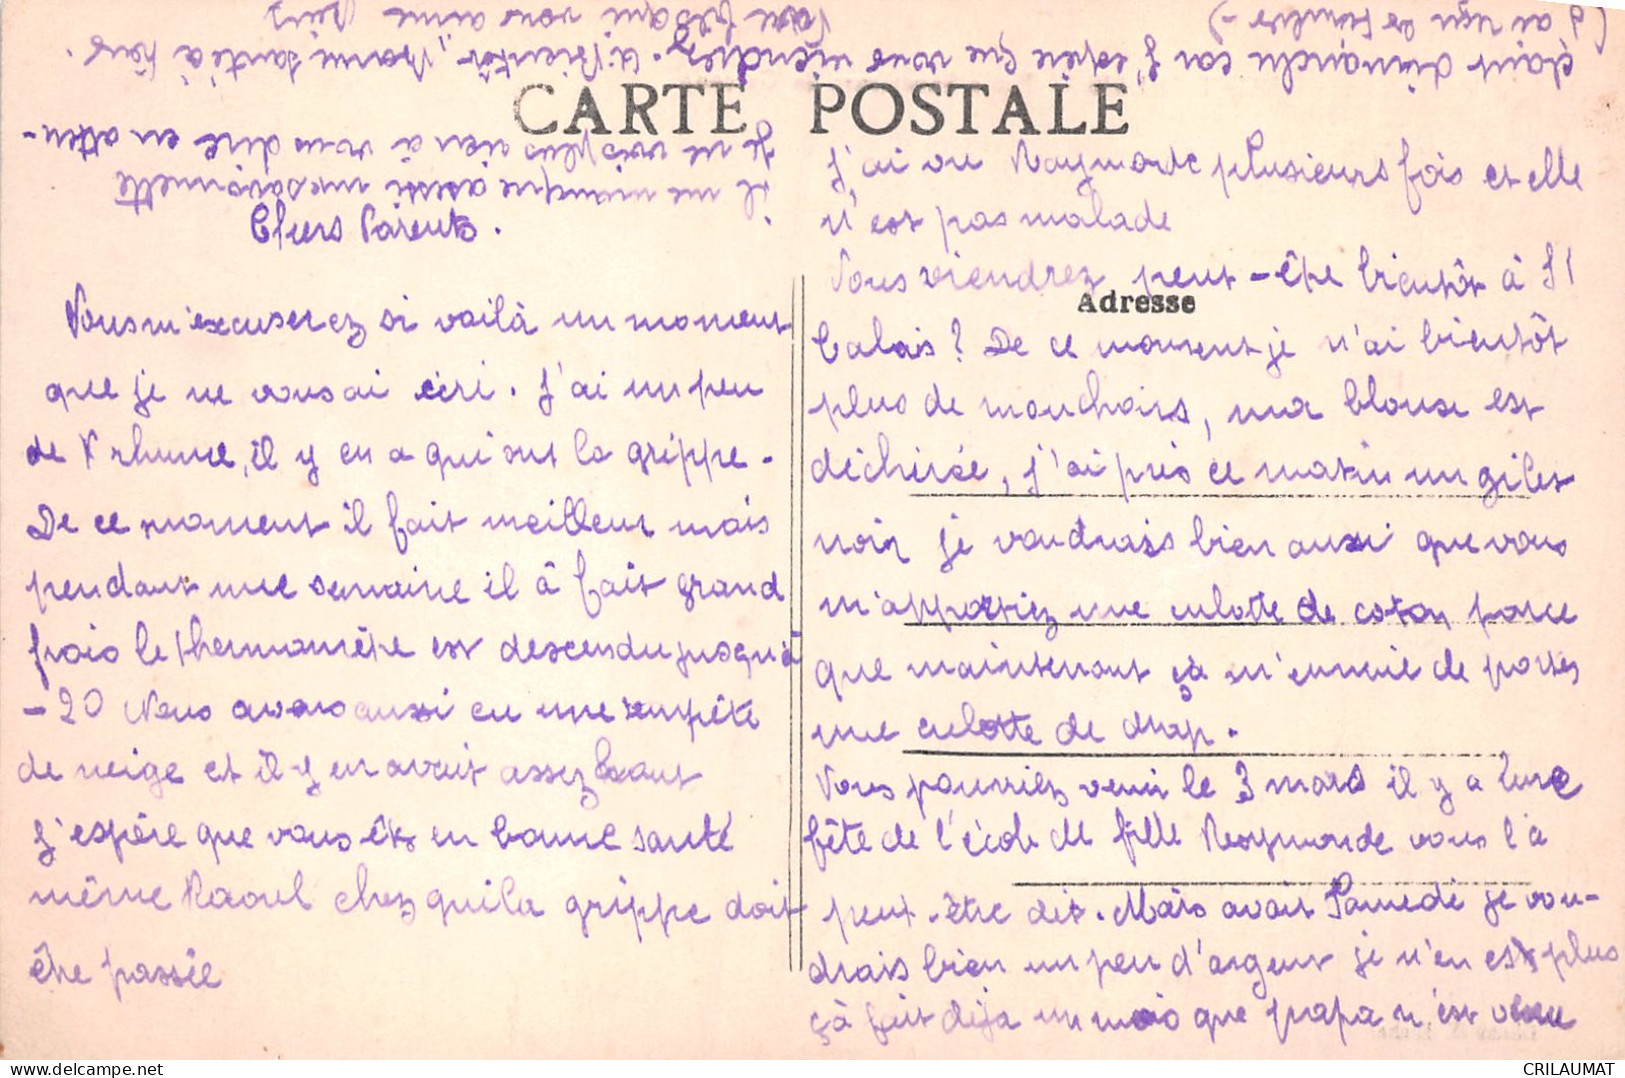 CARTE POSTALE
Chers Parents.
Vous m'excuserez si voilà un moment
que je ne vous ai écri. J'ai un peu
de rhume, il y en a qui ont la grippe.
De ce moment il fait meilleur mais
pendant une semaine il à fait grand
froid le thermomètre est descendu jusqu'à
-20 Nous avons aussi eu une tempête
de neige et il y en avait assez haut
J'espère que vous êtes en bonne santé
même Raoul chez qui la grippe doit
être passée
J'ai vu Raymonde plusieurs fois et elle
n'est pas malade
Vous viendrez peut-être bientôt à St
Adresse
Calais? De ce moment je n'ai bientôt
plus de mouchoirs, ma blouse est
déchirée, j'ai pris ce matin un gilet
noir je voudrais bien aussi que vous
m'apportiez une culotte de coton parce
que maintenant çà m'ennuie de porter
une culotte de drap.
Vous pourriez venir le 3 mars il y a une
fête de l'école de fille Raymonde vous l'a
peut-être dit. Mais avant Samedi je vou-
drais bien un peu d'argent je n'en est plus
çà fait déja un mois que papa n'est venu
il me manque aussi une savonnette
Je ne vois plus rien à vous dire en atten-
dant dimanche car j'espère que vous viendrez. A Bientôt, Bonne santé à tous.
Votre fils qui vous aime
(J'ai reçu les timbres-)
CRILAUMAT